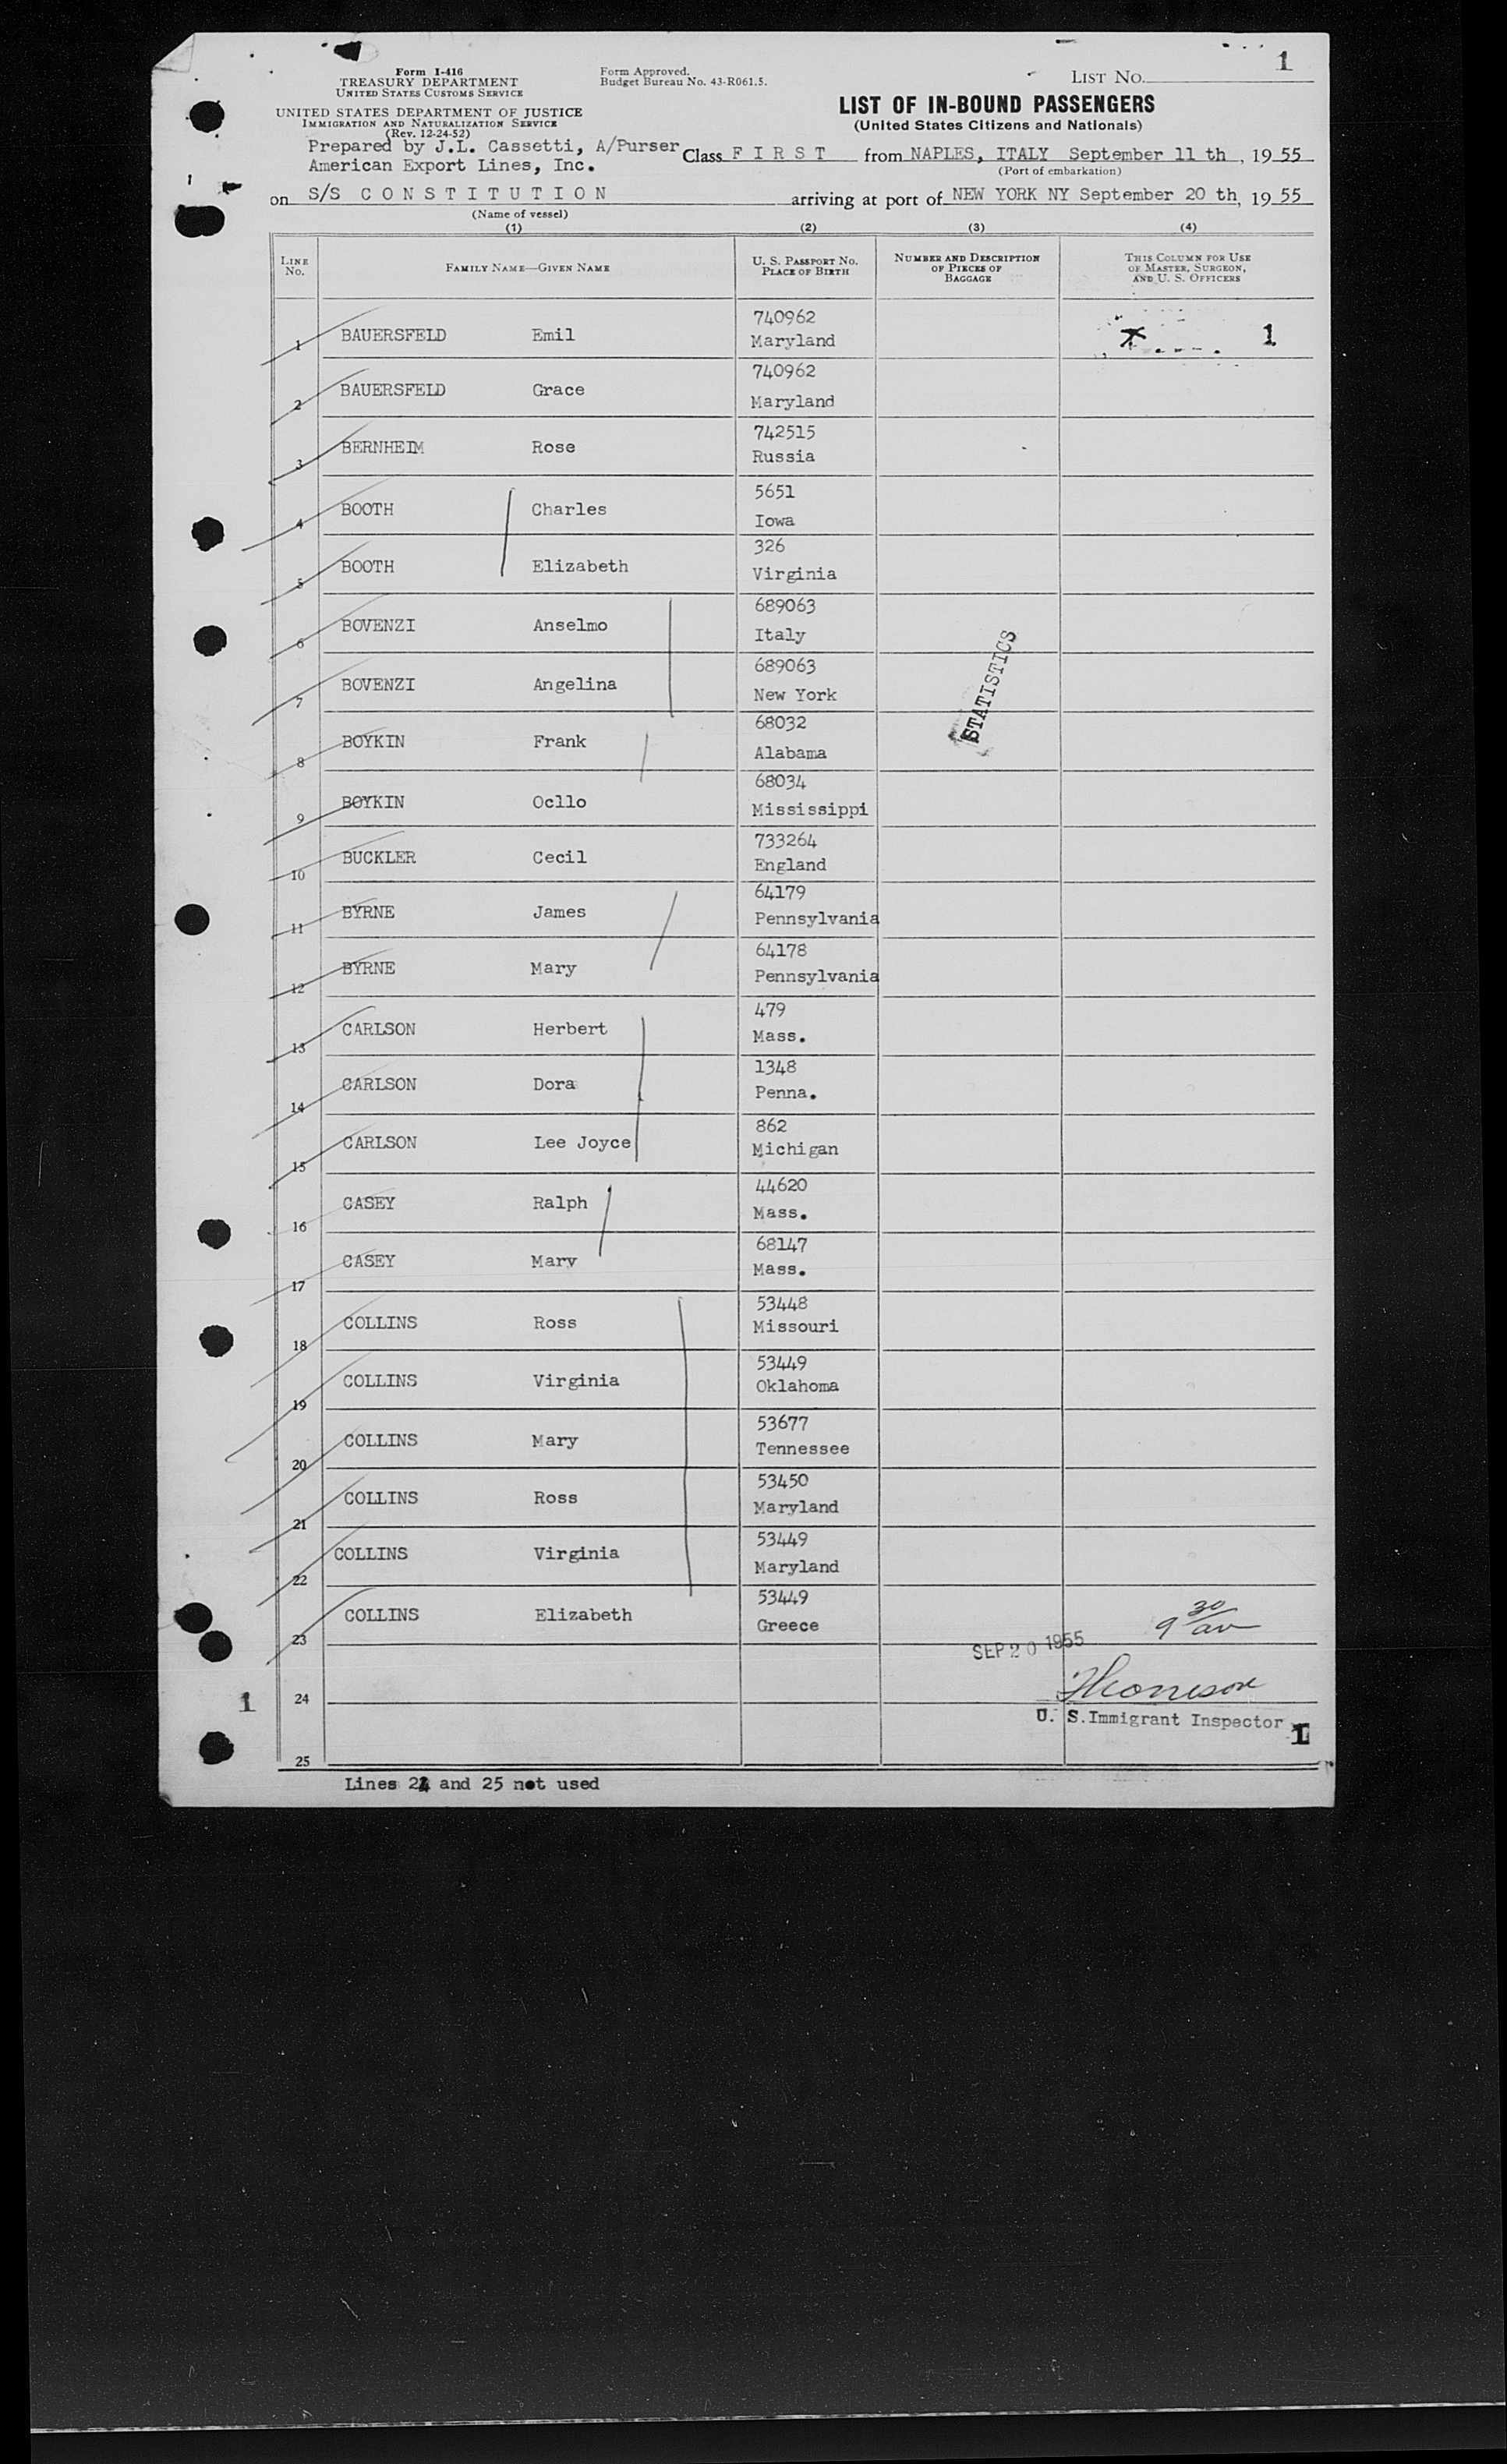 1
Form I-416
TREASURY DEPARTMENT
UNITED STATES CUSTOMS SERVICE
UNITED STATES DEPARTMENT OF JUSTICE
IMMIGRATION AND NATURALIZATION SERVICE
(Rev. 12-24-52)
Form Approved.
Budget Bureau No. 43-R061.5.
LIST NO.
LIST OF IN-BOUND PASSENGERS
(United States Citizens and Nationals)
Prepared by J.L. Cassetti, A/Purser
American Export Lines, Inc.
Class F I R S T from NAPLES, ITALY September 11 th, 19 55
(Port of embarkation)
on S/S C O N S T I T U T I O N arriving at port of NEW YORK NY September 20 th, 19 55
(Name of vessel)
(1) (2) (3) (4)
LINE NO.
FAMILY NAME—GIVEN NAME
U. S. PASSPORT NO.
PLACE OF BIRTH
NUMBER AND DESCRIPTION
OF PIECES OF
BAGGAGE
THIS COLUMN FOR USE
OF MASTER, SURGEON,
AND U. S. OFFICERS
1 BAUERSFELD Emil 740962 Maryland 1
2 BAUERSFELD Grace 740962 Maryland
3 BERNHEIM Rose 742515 Russia
4 BOOTH Charles 5651 Iowa
5 BOOTH Elizabeth 326 Virginia
6 BOVENZI Anselmo 689063 Italy
7 BOVENZI Angelina 689063 New York
STATISTICS
8 BOYKIN Frank 68032 Alabama
9 BOYKIN Ocllo 68034 Mississippi
10 BUCKLER Cecil 733264 England
11 BYRNE James 64179 Pennsylvania
12 BYRNE Mary 64178 Pennsylvania
13 CARLSON Herbert 479 Mass.
14 CARLSON Dora 1348 Penna.
15 CARLSON Lee Joyce 862 Michigan
16 CASEY Ralph 44620 Mass.
17 CASEY Mary 68147 Mass.
18 COLLINS Ross 53448 Missouri
19 COLLINS Virginia 53449 Oklahoma
20 COLLINS Mary 53677 Tennessee
21 COLLINS Ross 53450 Maryland
22 COLLINS Virginia 53449 Maryland
23 COLLINS Elizabeth 53449 Greece
9 30
SEP 20 1955
1 24
U. S. Immigrant Inspector 1
25
Lines 24 and 25 not used